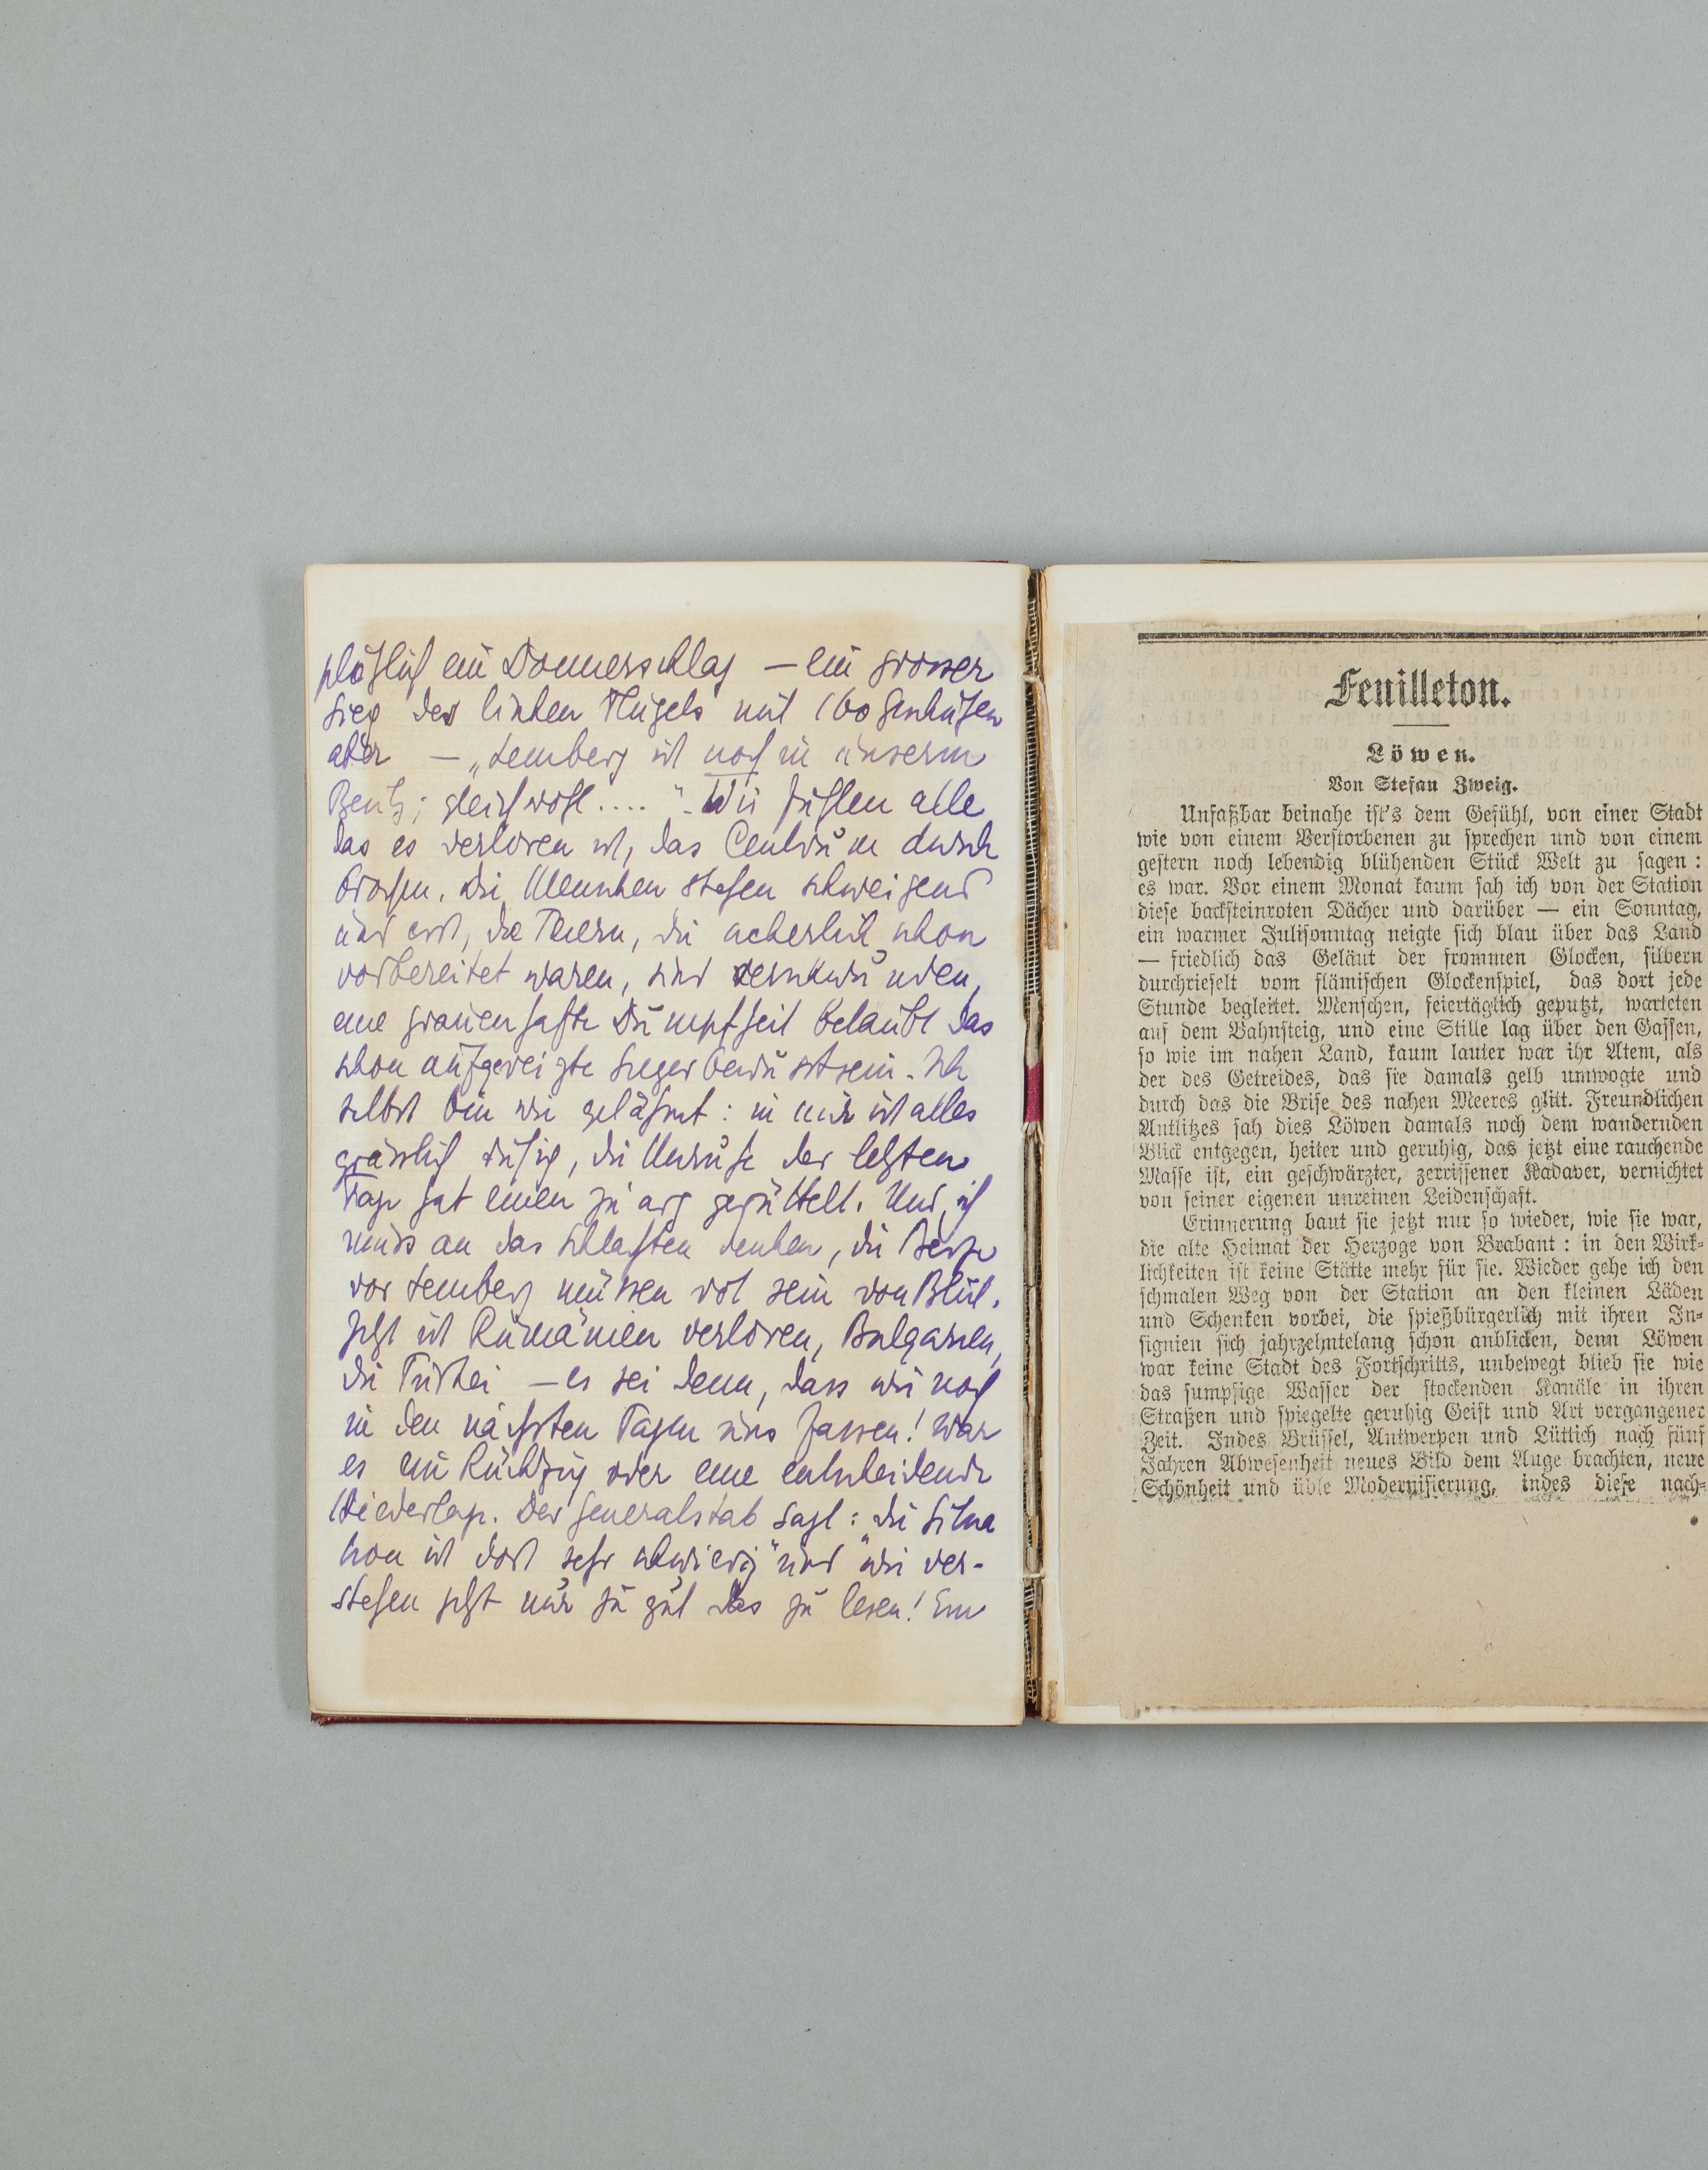 plötzlich ein Donnerschlag – ein grosser
Sieg des linken Flügels mit 160 Geschützen
aber – „Lemberg ist noch in unserm
Besitz; gleichwohl ....". Wir fühlen alle
das es verloren ist, das Centrum durch
brochen. Die Menschen stehen schweigend
und erst, die Feiern, die sicherlich schon
vorbereitet waren, sind verschwunden,
eine grauenhafte Dumpfheit betäubt das
schon aufgereizte Siegerbewusstsein. Ich
selbst bin wie gelähmt: in mir ist alles
grässlich ruhig, die Unruhe der letzten
Tage hat einen zu arg gerüttelt. Und ich
muss an das Schlachten denken, die Berge
vor Lemberg müssen rot sein von Blut.
Jetzt ist Rumänien verloren, Bulgarien,
die Türkei – es sei denn, dass wir noch
in den nächsten Tagen uns fassen! War
es ein Rückzug oder eine entscheidende
Niederlage. Der Generalstab sagt: die Situa
tion ist dort sehr schwierig" und wir ver-
stehen jetzt nur zu gut das zu lesen! Ein
Feuilleton.
Löwen.
Von Stefan Zweig.
Unfaßbar beinahe ist's dem Gefühl, von einer Stadt
wie von einem Verstorbenen zu sprechen und von einem
gestern noch lebendig blühenden Stück Welt zu sagen:
es war. Vor einem Monat kaum sah ich von der Station
diese backsteinroten Dächer und darüber — ein Sonntag,
ein warmer Julisonntag neigte sich blau über das Land
— friedlich das Geläut der frommen Glocken, silbern
durchrieselt vom flämischen Glockenspiel, das dort jede
Stunde begleitet. Menschen, feiertäglich geputzt, warteten
auf dem Bahnsteig, und eine Stille lag über den Gassen,
so wie im nahen Land, kaum lauter war ihr Atem, als
der des Getreides, das sie damals gelb umwogte und
durch das die Brise des nahen Meeres glitt. Freundlichen
Antlitzes sah dies Löwen damals noch dem wandernden
Blick entgegen, heiter und geruhig, das jetzt eine rauchende
Masse ist, ein geschwärzter, zerrissener Kadaver, vernichtet
von seiner eigenen unreinen Leidenschaft.
Erinnerung baut sie jetzt nur so wieder, wie sie war,
die alte Heimat der Herzoge von Brabant: in den Wirk-
lichkeiten ist keine Stätte mehr für sie. Wieder gehe ich den
schmalen Weg von der Station an den kleinen Läden
und Schenken vorbei, die spießbürgerlich mit ihren In-
signien sich jahrzehntelang schon anblicken, denn Löwen
war keine Stadt des Fortschritts, unbewegt blieb sie wie
das sumpfige Wasser der stockenden Kanäle in ihren
Straßen und spiegelte geruhig Geist und Art vergangener
Zeit. Indes Brüssel, Antwerpen und Lüttich nach fünf
Jahren Abwesenheit neues Bild dem Auge brachten, neue
Schönheit und üble Modernisierung, indes diese nach-